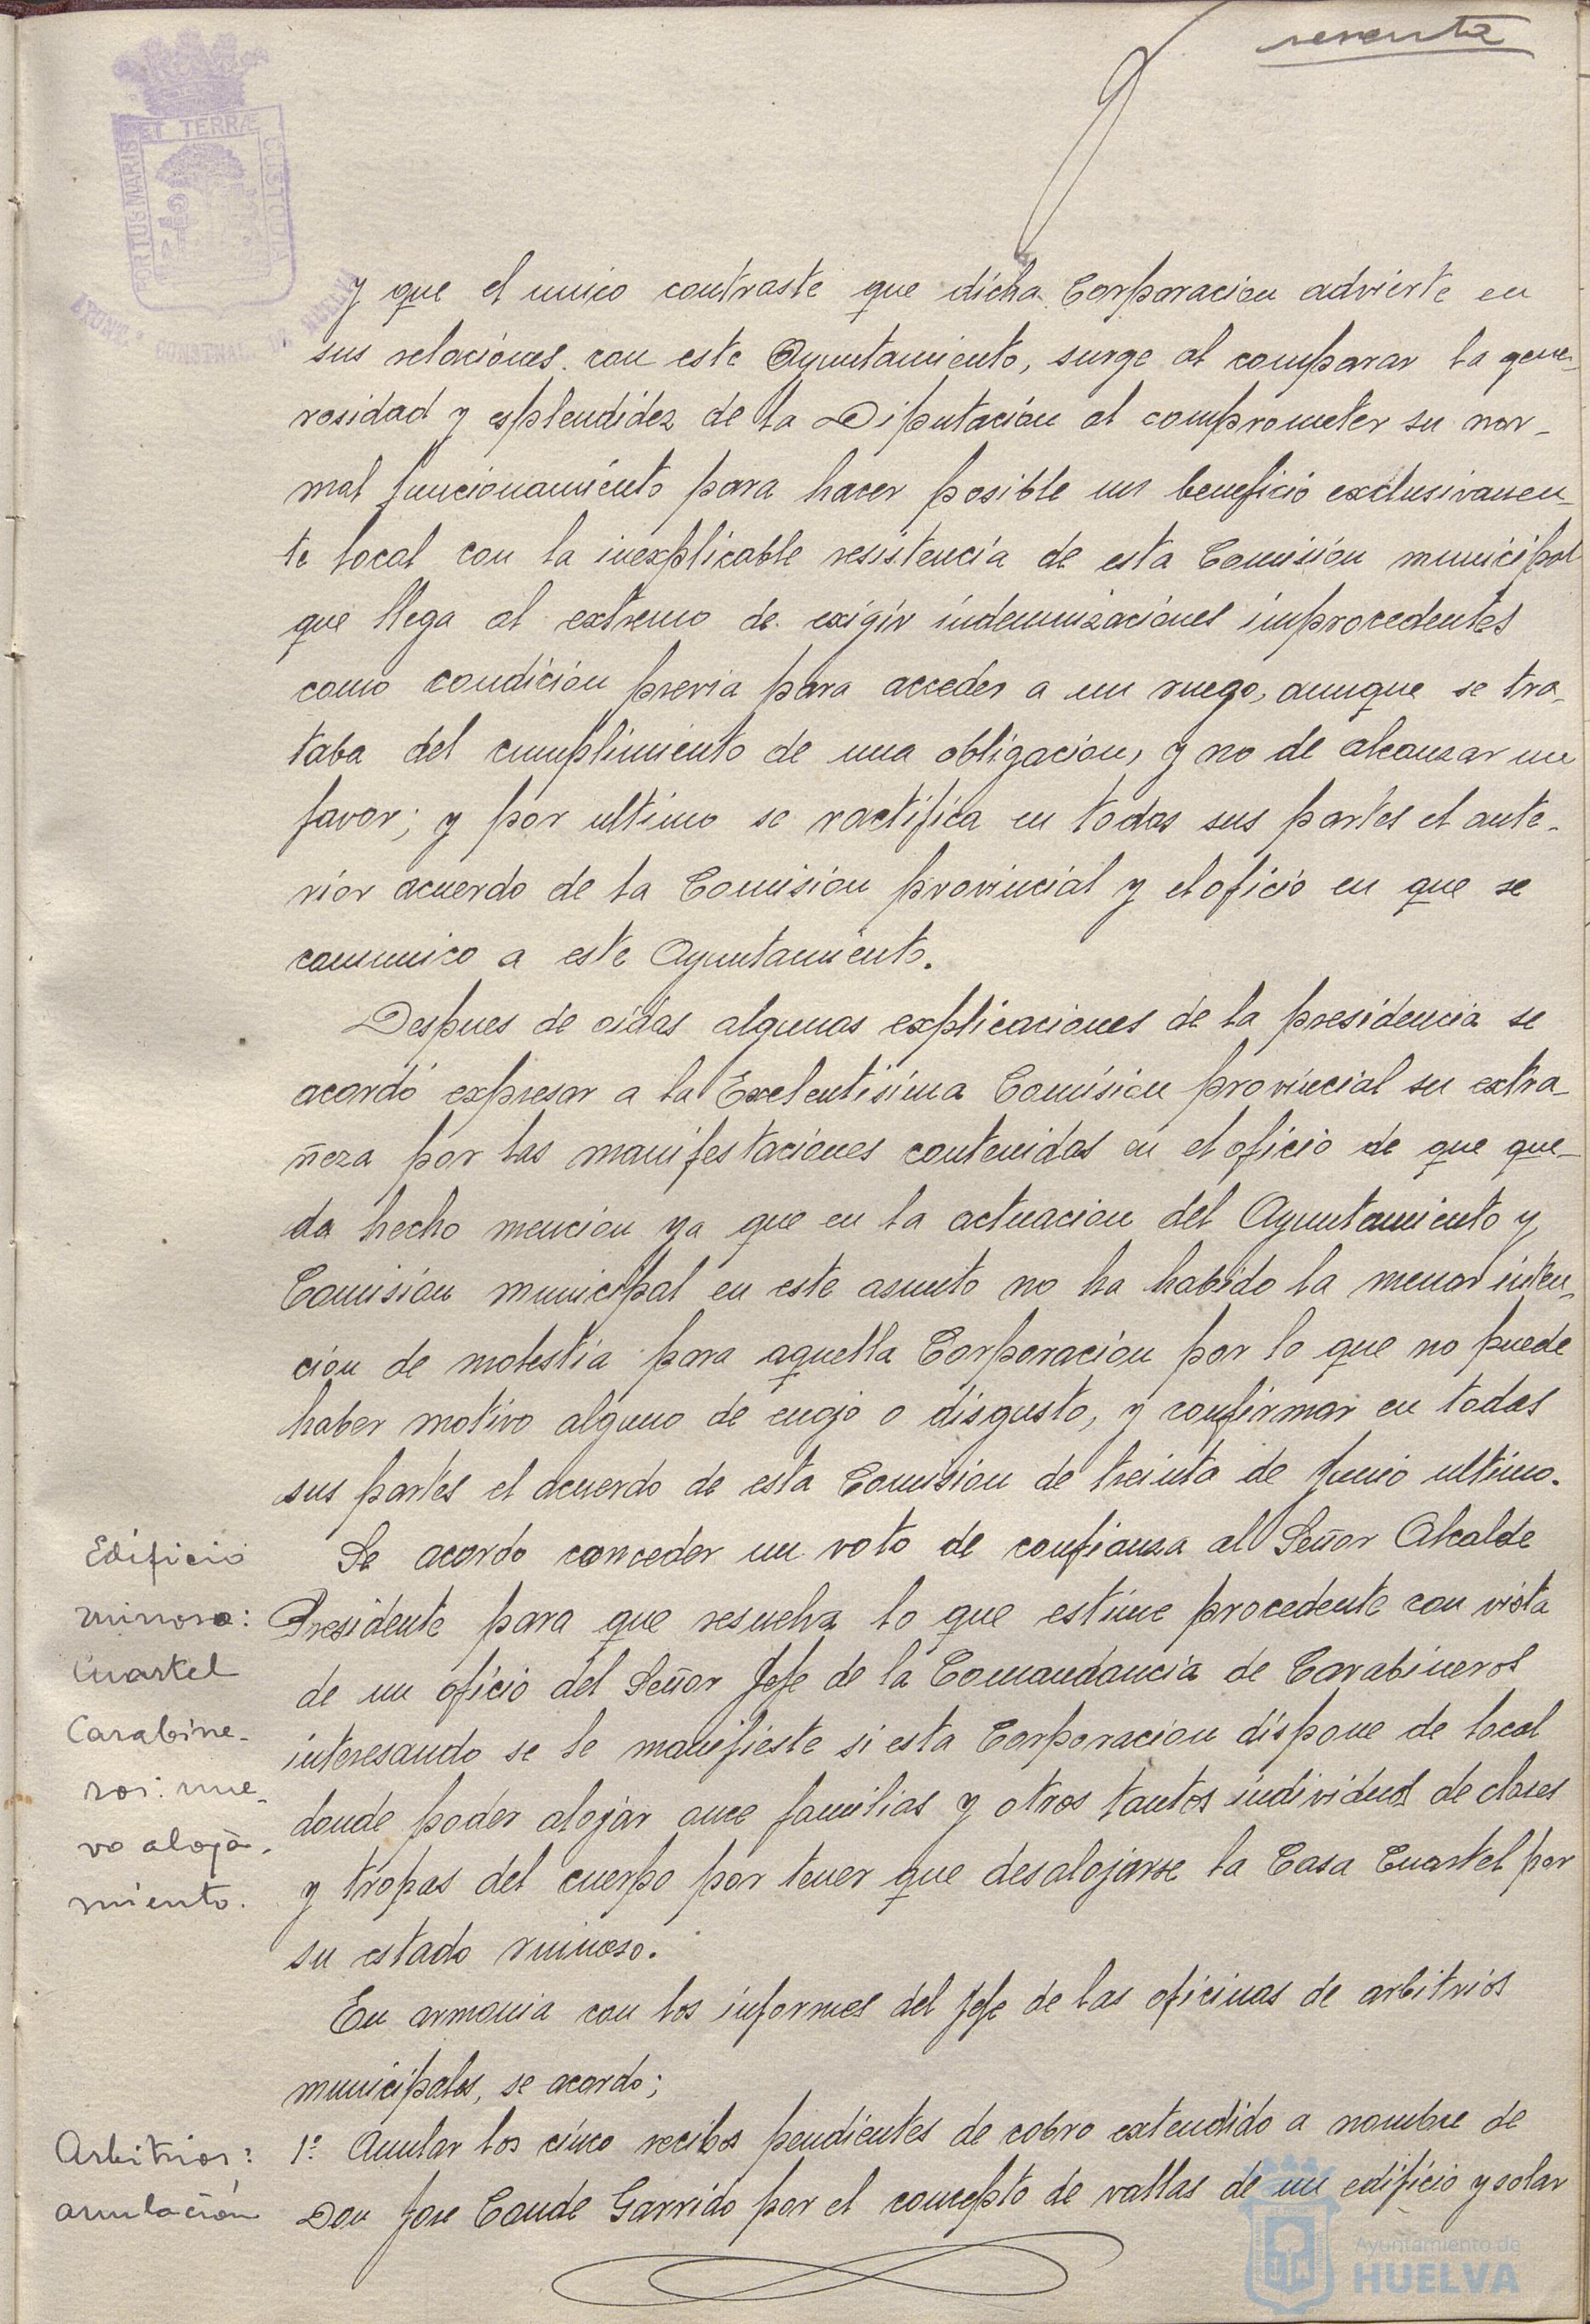 PORTUS MARIS ET TERRÆ CUSTODIA
y que el unico contraste que dicha Corporacion advierte en
sus relaciónes con este Ayuntamiento, surge al comparar la gene-
rosidad y esplendidez de la Diputación al comprometer su nor-
mal funcionamiento para hacer posible un beneficio exclusivamen-
te local con la inexplicable resistencia de esta Comisión municipal
que llega al extremo de exigir indemnizaciónes improcedentes
como condición previa para acceder a un ruego, aunque se tra-
taba del cumplimiento de una obligacion, y no de alcanzar un
favor; y por ultimo se ractifica en todas sus partes el ante-
rior acuerdo de la Comision provincial y el oficio en que se
comunico a este Ayuntamiento.
Despues de oidas algunas explicaciones de la presidencia se
acordó expresar a la Exelentisima Comisión provincial su extra-
ñeza por las manifestaciónes contenidas en el oficio de que que-
da hecho mencion ya que en la actuacion del Ayuntamiento y
Comisión municipal en este asunto no ha habido la menor inten-
ción de molestia para aquella Corporación por lo que no puede
haber motivo alguno de enojo o disgusto, y confirmar en todas
sus partes el acuerdo de esta Comisión de treinta de Junio ultimo.
Edificio
ruinoso:
Cuartel
Carabine-
ros: nue-
vo aloja-
miento.
Se acordo conceder un voto de confianza al Señor Alcalde
Presidente para que resuelva lo que estime procedente con vista
de un oficio del Señor Jefe de la Comandancia de Carabineros
interesando se le manifieste si esta Corporacion dispone de local
donde poder alojar once familias y otros tantos individuos de clases
y tropas del cuerpo por tener que desalojarse la Casa Cuartel por
su estado ruinoso.
En armonia con los informes del Jefe de las oficinas de arbitrios
municipales, se acordo;
Arbitrios:
anulación
1º Anular los cinco recibos pendientes de cobro extendido a nombre de
Don Jose Conde Garrido por el concepto de vallas de un edificio y solar
Ayuntamiento de
HUELVA